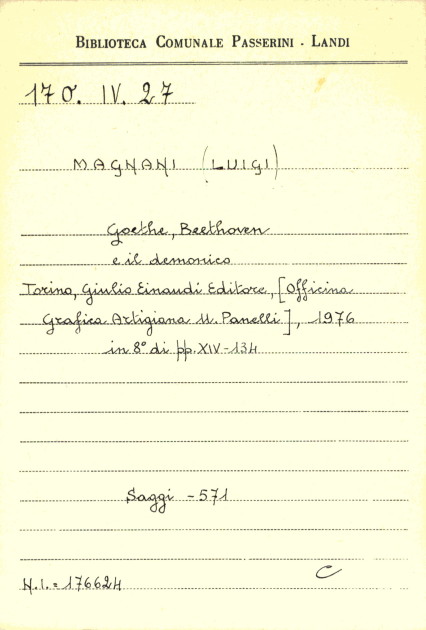 BIBLIOTECA COMUNALE PASSERINI - LANDI
170. IV. 27
MAGNANI (LUIGI)
Goethe, Beethoven
e il demonico
Torino, Giulio Einaudi Editore, [Officina
Grafica Artigiana U. Panelli], 1976
in 8° di pp. XIV-134
Saggi - 571
N.I. = 176624
C